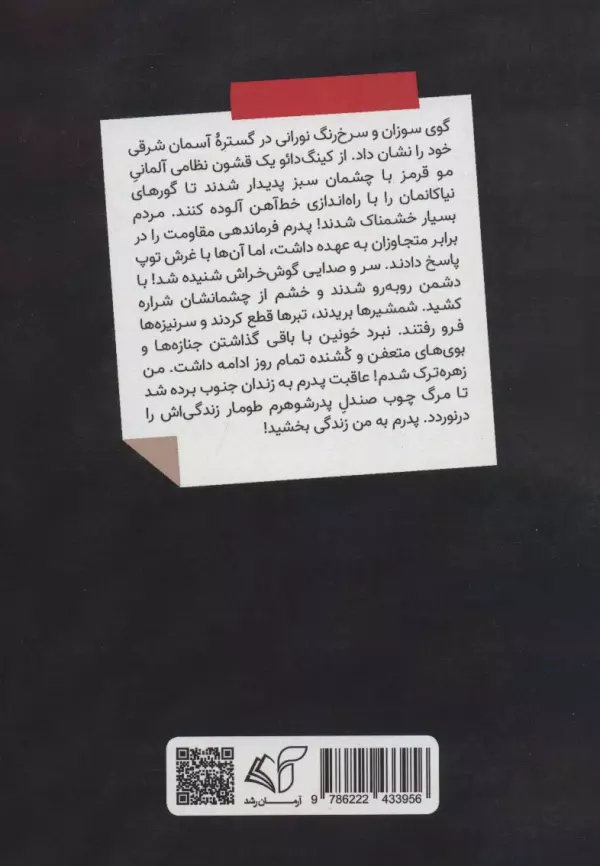 گوی سوزان و سرخ‌رنگ نورانی در گسترهٔ آسمان شرقی
خود را نشان داد. از کینگ‌دائو یک قشون نظامی آلمانیِ
مو قرمز با چشمان سبز پدیدار شدند تا گورهای
نیاکانمان را با راه‌اندازی خط‌آهن آلوده کنند. مردم
بسیار خشمناک شدند! پدرم فرماندهی مقاومت را در
برابر متجاوزان به عهده داشت، اما آن‌ها با غرش توپ
پاسخ دادند. سر و صدایی گوش‌خراش شنیده شد! با
دشمن روبه‌رو شدند و خشم از چشمانشان شراره
کشید. شمشیرها بریدند، تبرها قطع کردند و سرنیزه‌ها
فرو رفتند. نبرد خونین با باقی گذاشتن جنازه‌ها و
بوی‌های متعفن و کُشنده تمام روز ادامه داشت. من
زهره‌ترک شدم! عاقبت پدرم به زندان جنوب برده شد
تا مرگ چوب صندلِ پدرشوهرم طومار زندگی‌اش را
درنوردد. پدرم به من زندگی بخشید!
آرمان رشد
9 786222 433956